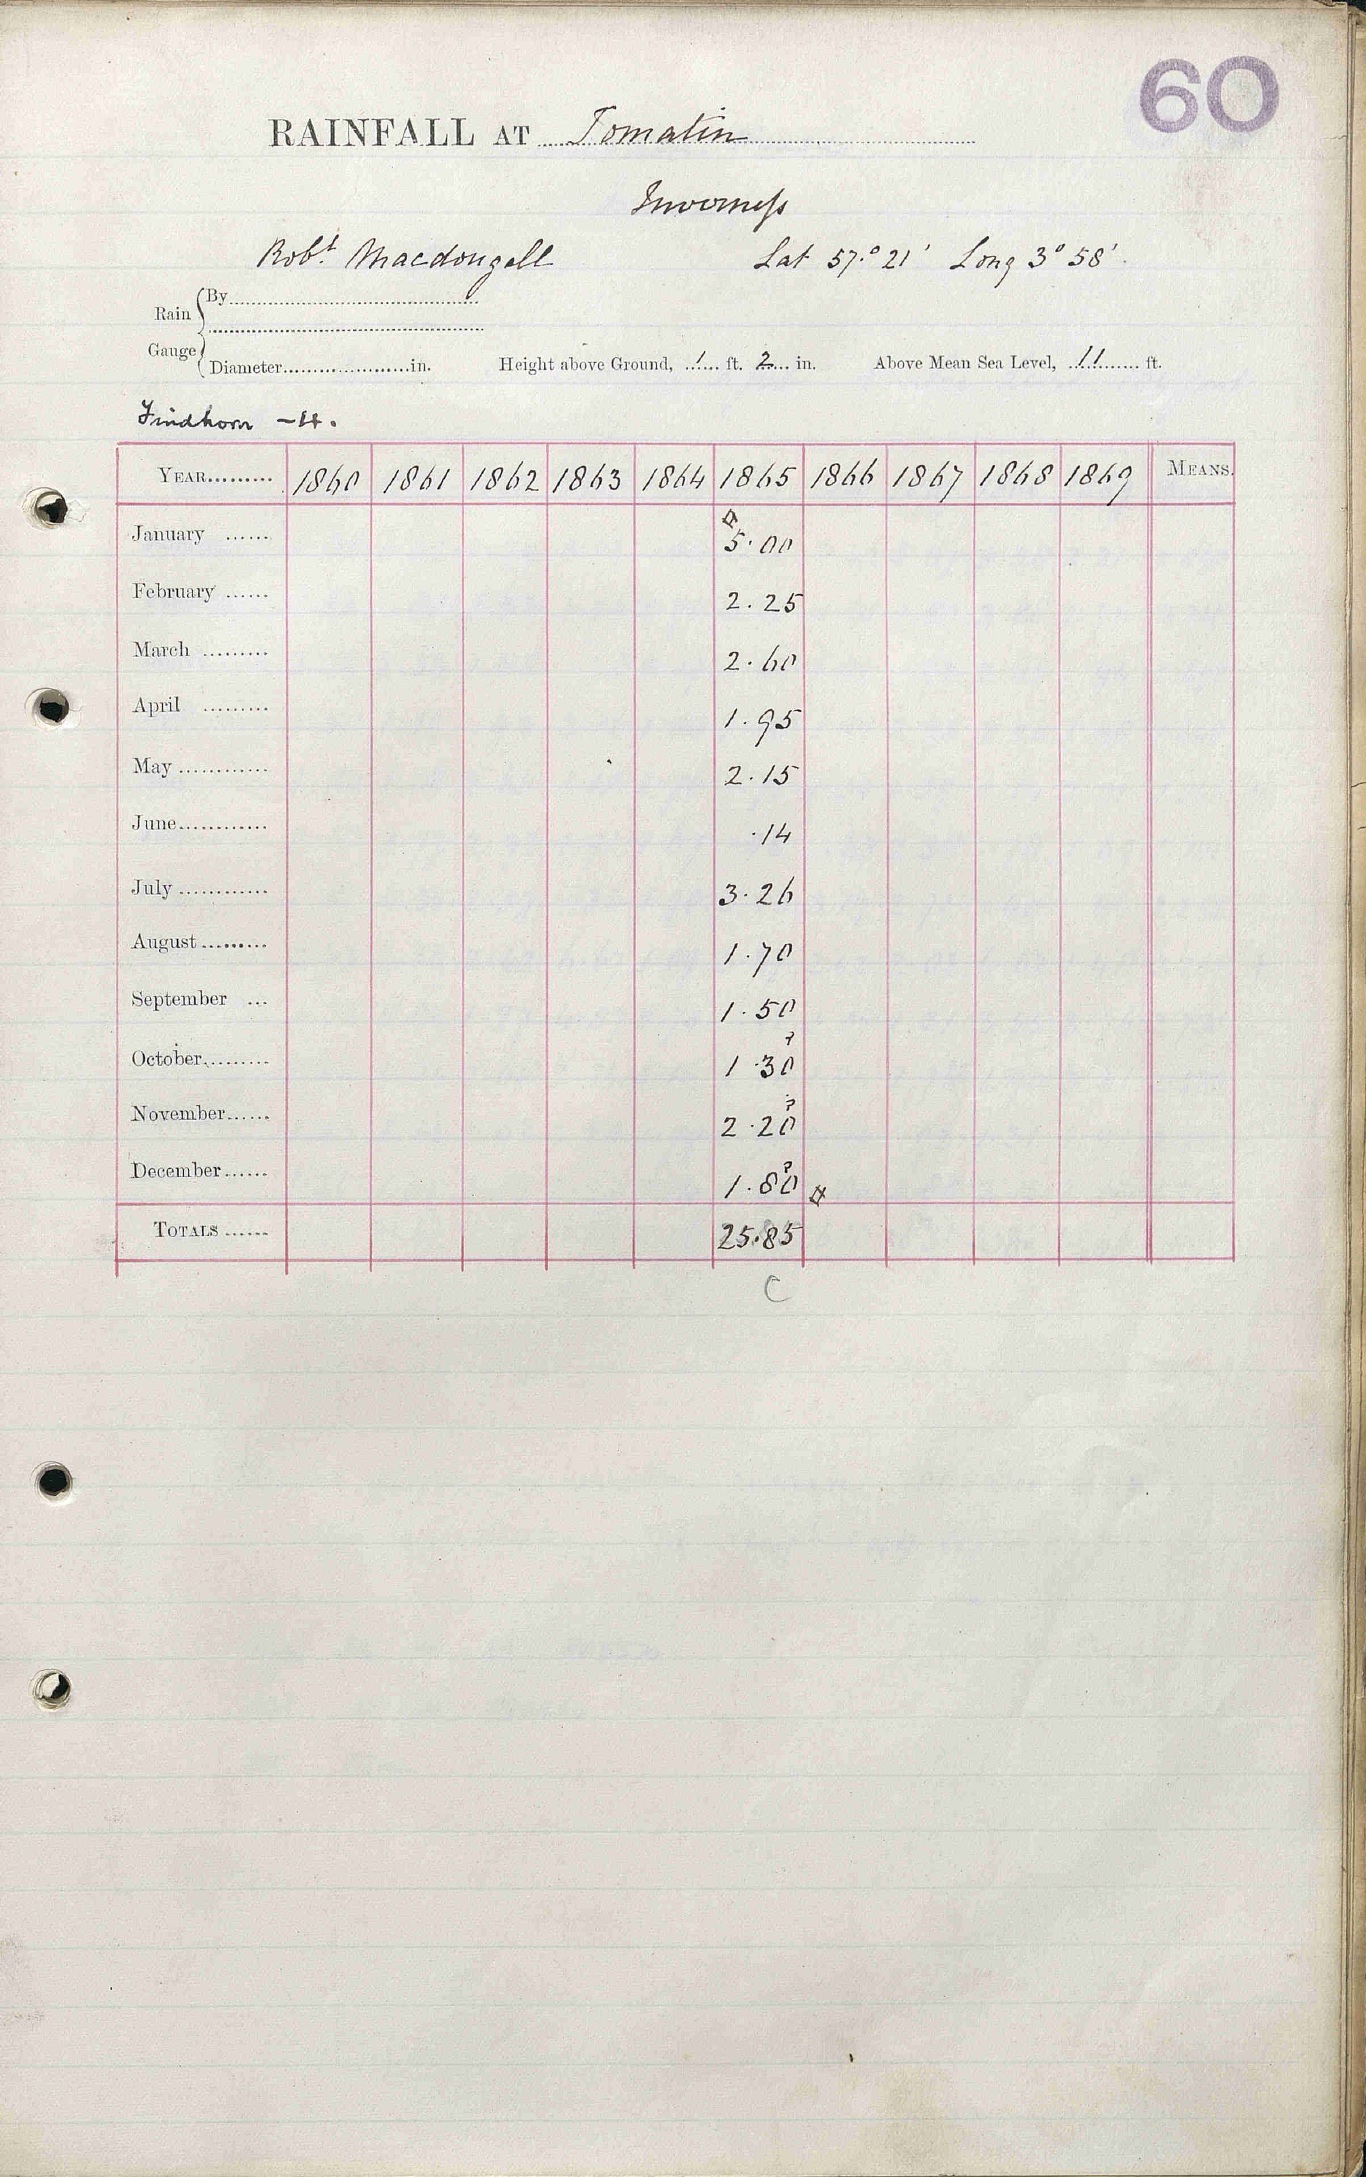 60
RAINFALL AT Tomatin
Inverness
Robt Macdougall Lat 57.° 21' Long 3° 58'
Rain Gauge
By
Diameter in. Height above Ground, 1 ft. 2 in. Above Mean Sea Level, 11 ft.
Findhorn
YEAR 1860 1861 1862 1863 1864 1865 1866 1867 1868 1869 MEANS.
January 5.00
February 2.25
March 2.60
April 1.95
May 2.15
June .14
July 3.26
August 1.70
September 1.50
October 1.30 ?
November 2.20 ?
December 1.80 ?
TOTALS 25.85
C